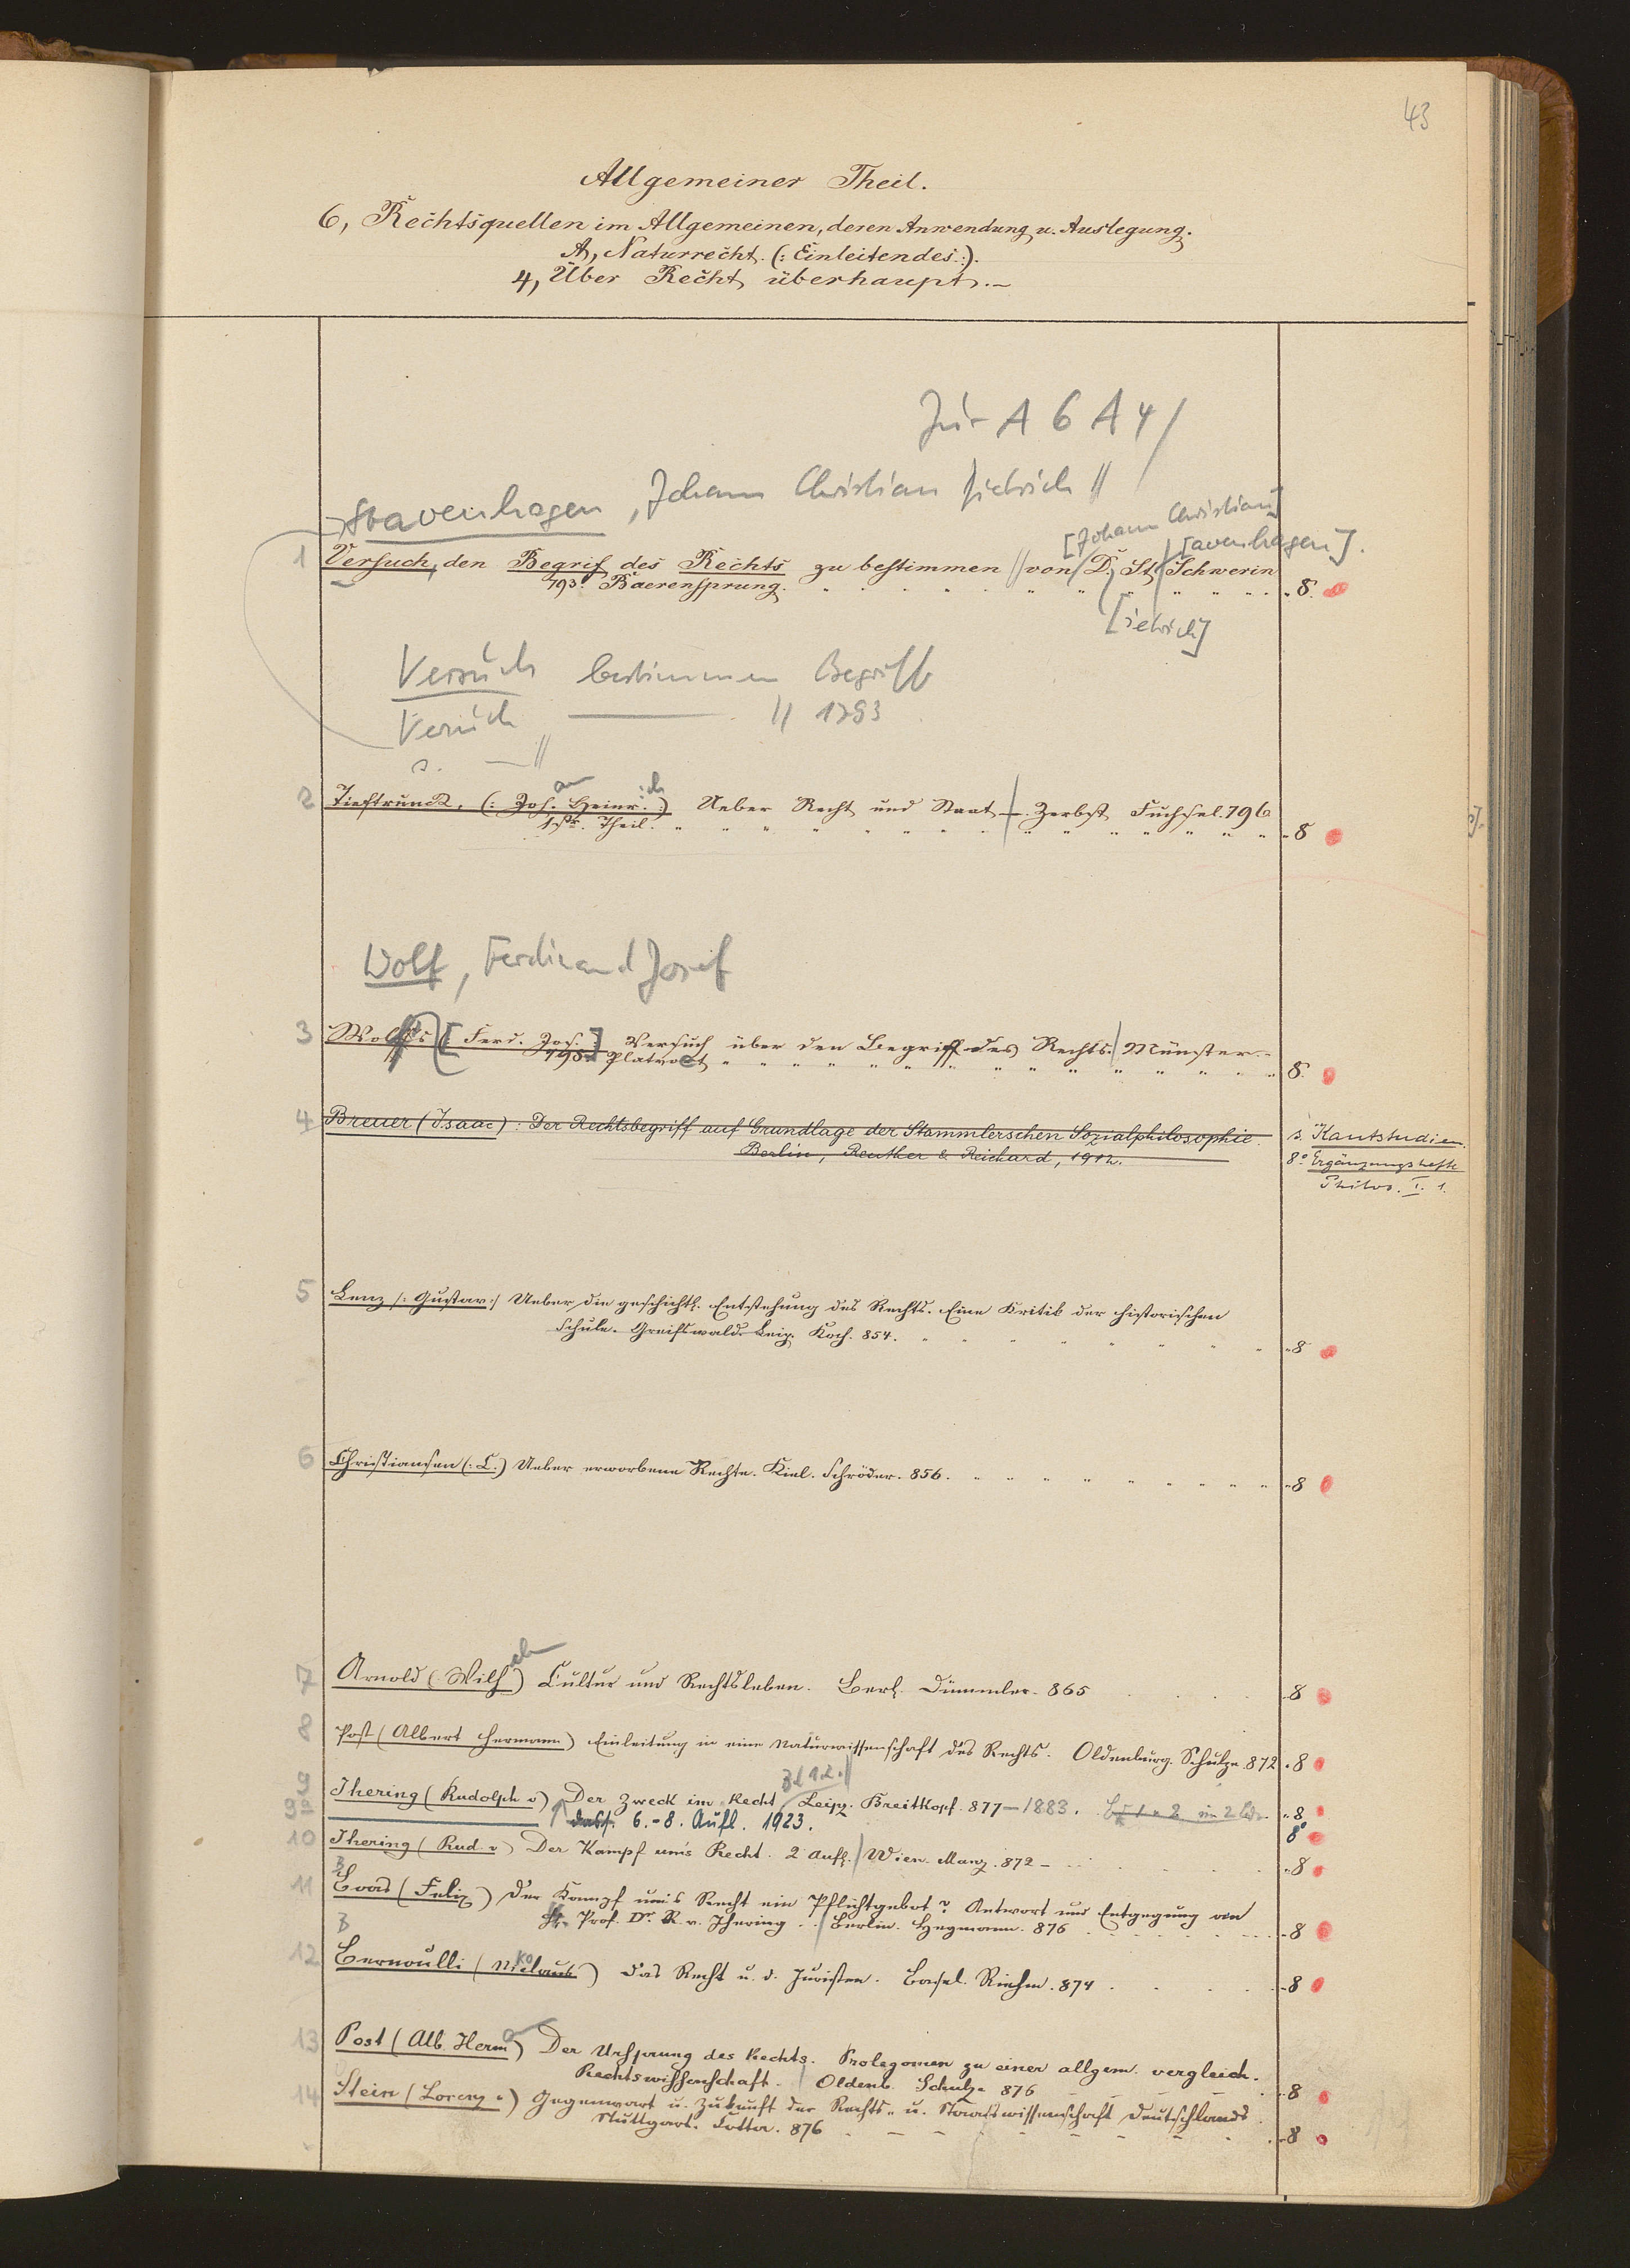 43
Allgemeiner Theil.
6, Rechtsquellen im Allgemeinen, deren Anwendung u. Auslegung.
A, Naturrecht. (: Einleitendes :).
4, Über Recht überhaupt. –
Jur A 6 A 4/
Stavenhagen, Johann Christian Dietrich //
[Johann Christian]
[avenhagen].
1 Versuch, den Begrif des Rechts zu bestimmen // von D. St. Schwerin
793. Baerensprung. 8.
[ietrich]
Versuch bestimmen Begriff
Versuch — // 1793
s. — //
2 Tieftrunk, (: Joh. Heinr. :) Ueber Recht und Staat. Zerbst Fuchsel. 796
1ster Theil. 8
Wolf, Ferdinand Josef
3 Wolfs [Ferd. Jos.] Versuch über den Begriff des Rechts. Münster.
Platvoet 8.
4 Breuer (Isaac): Der Rechtsbegriff auf Grundlage der Stammlerschen Sozialphilosophie.
Berlin, Reuther & Reichard, 1912.
s. Kantstudien.
8° Ergänzungshefte
Philos. I. 1.
5 Lenz /: Gustav :/ Ueber die geschichtl. Entstehung des Rechts. Eine Kritik der historischen
Schule. Greifswald. Leip. Koch. 854. 8
6 Christiansen (: C.) Ueber erworbene Rechte. Kiel. Schröder. 856. 8
7 Arnold (Wilh elm) Cultur und Rechtsleben. Berl. Dümmler. 865 8
8 Post (Albert Hermann) Einleitung in eine Naturwissenschaft des Rechts. Oldenburg. Schulze. 872 8
Bd 1.2. //
9 Jhering (Rudolph v) Der Zweck im Recht Leipz. Breitkopf. 877–1883. 8
9a dass. 6.-8. Aufl. 1923. 8°
10 Jhering (Rud. v) Der Kampf um's Recht. 2 Aufl. Wien. Manz. 872 – 8
11 Boas (Felix) Der Kampf um's Recht ein Pflichtgebot? Antwort und Entgegnung von
Hr. Prof. Dr. R. v. Jhering. Berlin. Heymann. 876 8
12 Bernoulli (Nikolaus) Das Recht u. d. Juristen. Basel. Riehm. 874 8
13 Post (Alb. Herm) Der Ursprung des Rechts. Prolegomen zu einer allgem. vergleich.
Rechtswissenschaft. Oldenb. Schulze 876 8
14 Stein (Lorenz v) Gegenwart u. Zukunft der Rechts- u. Staatswissenschaft Deutschlands.
Stuttgart. Cotta. 876 8